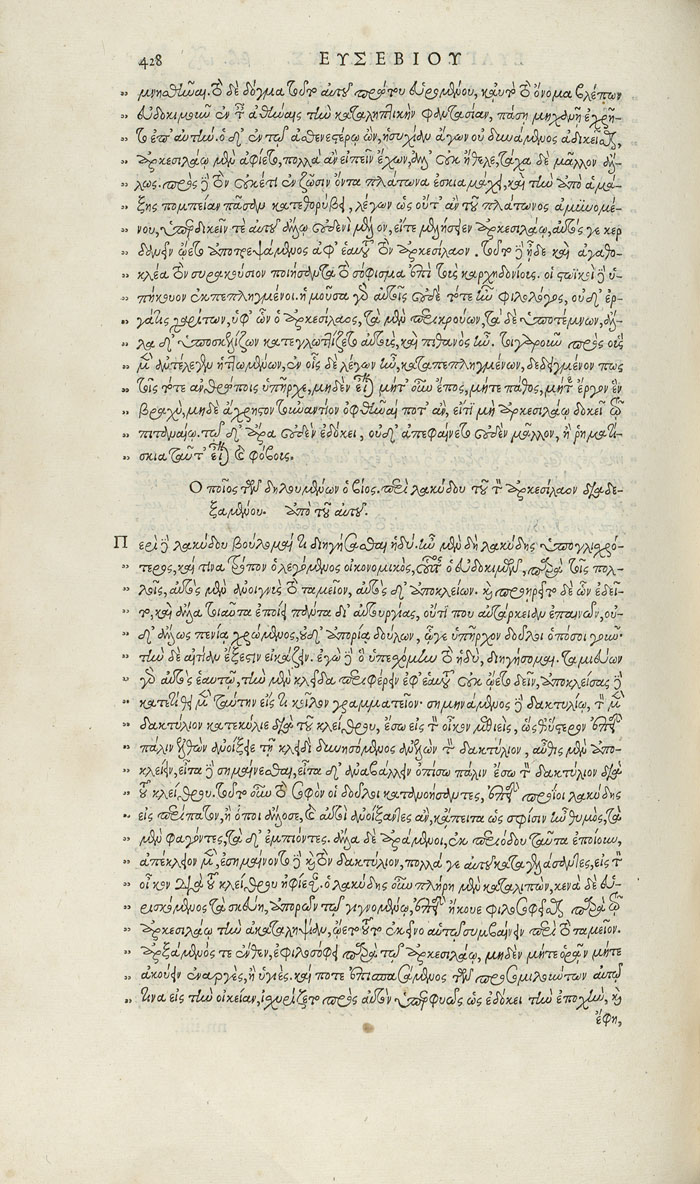 428 ΕΥΣΕΒΙΟΥ
μνηθῆναι. τὸ δὲ δόγμα τοῦτο αὐτοῦ πρώτου εὑρομένου, καὶ αὐτὸ τὸ ὄνομα βλέπων
εὐδοκιμοῦν ἐν τ ἀθήναις τὴν καταληπτικὴν φαντασίαν, πάσῃ μηχανῇ ἐχρῆ-
το ἐπ' αὐτήν. ὁ δ' ἐν τῷ ἀθενεστέρῳ ὢν, ἡσυχίαν ἄγων οὐ δυνάμενος ἀδικεῖσθαι,
ἀρκεσιλάῳ μὲν ἀφίετο, πολλὰ ἂν εἰπεῖν ἔχων, ἀλλ' οὐκ ἤθελε, τάχα δὲ μᾶλλον ἄλ-
λως. πρὸς δὲ τὸν οὐκέτι ἐν ζῶσιν ὄντα πλάτωνα ἐσκιαμάχει, καὶ τὴν ἀπὸ ἁμά-
ξης πομπείαν πᾶσαν κατεθορύβει, λέγων ὡς οὔτ' ἂν τοῦ πλάτωνος ἀμυνομέ-
νου, ὑπερδικεῖν τε αὐτοῦ ἄλλῳ οὐδενὶ μέλον, εἴτε μελήσειεν ἀρκεσιλάῳ, αὐτός γε κερ
δανεῖν ᾤετο ἀποτρεψάμενος ἀφ' ἑαυτοῦ τὸν ἀρκεσίλαον. τοῦτο δὲ ᾔδε καὶ ἀγαθο-
κλέα τὸν συρακούσιον ποιήσαντα τὸ σόφισμα ἐπὶ τοὺς καρχηδονίους. οἱ στωικοὶ δὲ ὑ-
πήκουον ἐκπεπληγμένοι. ἡ μοῦσα γὰρ αὐτοῖς οὐδὲ τότε ἦν φιλολόγος, οὐδ' ἐρ-
γάτις χαρίτων, ὑφ' ὧν ὁ ἀρκεσίλαος, τὰ μὲν περικρούων, τὰ δὲ ὑποτέμνων, ἄλ-
λα δ' ὑποσκελίζων κατεγλωττίζετο αὐτοὺς, καὶ πιθανὸς ἦν. τοιγαροῦν πρὸς οὓς
μὲν ἀντέλεγεν ἡττωμένων, ἐν οἷς δὲ λέγων ἦν, καταπεπληγμένων, δεδειγμένον πως
τοῖς τότε ἀνθρώποις ὑπῆρχε, μηδὲν εἶναι μήτ' οὖν ἔπος, μήτε πάθος, μήτε ἔργον ἓν
βραχὺ, μηδὲ ἄχρηστον τοὐναντίον ὀφθῆναί ποτ' ἂν, εἴ τι μὴ ἀρκεσιλάῳ δοκεῖ τῷ
πιταναίῳ. τῷ δ' ἄρα οὐδὲν ἐδόκει, οὐδ' ἀπεφαίνετο οὐδὲν μᾶλλον, ἢ ῥημάτι-
σκια ταῦτ' εἶναι καὶ φόβους.
Ὁποῖος τῶν δηλουμένων ὁ βίος. περὶ λακύδου τοῦ τὸν ἀρκεσίλαον διαδε-
ξαμένου. ἀπὸ τοῦ αὐτοῦ.
Περὶ δὲ λακύδου βούλομαί τι διηγήσασθαι ἡδύ. ἦν μὲν δὴ λακύδης ὑπογλισχρό-
τερος, καί τινα τρόπον ὁ λεγόμενος οἰκονομικὸς, οὗτος ὁ εὐδοκιμῶν παρὰ τοῖς πολ-
λοῖς, αὐτὸς μὲν ἀνοιγνὺς τὸ ταμεῖον, αὐτὸς δ' ἀποκλείων. καὶ προῃρεῖτο δὲ ὧν ἐδεῖ-
το, καὶ ἄλλα τοιαῦτα ἐποίει πάντα δι' αὐτουργίας, οὔτι που αὐτάρκειαν ἐπαινῶν, οὐ-
δ' ἄλλως πενίᾳ χρώμενος, οὐδ' ἀπορίᾳ δούλων, ᾧ γε ὑπῆρχον δοῦλοι ὁπόσοι γοῦν.
τὴν δὲ αἰτίαν ἔξεστιν εἰκάζειν. ἐγὼ δὲ ὃ ὑπεσχόμην τὸ ἡδὺ, διηγήσομαι. ταμιεύων
γὰρ αὐτὸς ἑαυτῷ, τὴν μὲν κλεῖδα περιφέρειν ἐφ' ἑαυτοῦ οὐκ ᾤετο δεῖν, ἀποκλείσας δὲ
κατετίθει μὲν ταύτην εἴς τι κοῖλον γραμματεῖον. σημηνάμενος δὲ δακτυλίῳ, τὸν μὲν
δακτύλιον κατεκύλιε διὰ τοῦ κλείθρου, ἔσω εἰς τὸν οἶκον μεθιεὶς, ὡς ὕστερον ἐπειδὴ
πάλιν ἐλθὼν ἀνοίξειε τῇ κλειδὶ δυνησόμενος ἀνελὼν τὸν δακτύλιον, αὖθις μὲν ἀπο-
κλείειν, εἶτα δὲ σημαίνεσθαι, εἶτα δ' ἀναβάλλειν ὀπίσω πάλιν ἔσω τὸν δακτύλιον διὰ
τοῦ κλείθρου. τοῦτο οὖν τὸ σοφὸν οἱ δοῦλοι κατανοήσαντες, ἐπειδὴ προίοι λακύδης
εἰς περίπατον, ἢ ὅποι ἄλλοσε, καὶ αὐτοὶ ἀνοίξαντες ἂν, κἄπειτα ὡς σφίσιν ἦν θυμὸς, τὰ
μὲν φαγόντες, τὰ δ' ἐμπιόντες. ἄλλα δὲ ἀράμενοι, ἐκ περιόδου ταῦτα ἐποίουν,
ἀπέκλειον μὲν, ἐσημαίνοντο δὲ καὶ τὸν δακτύλιον, πολλά γε αὐτοῦ καταγελάσαντες, εἰς τὸν
οἶκον διὰ τοῦ κλείθρου ἠφίεσαν. ὁ λακύδης οὖν πλήρη μὲν καταλιπὼν, κενὰ δὲ εὑ-
ρισκόμενος τὰ σκεύη, ἀπορῶν τῷ γιγνομένῳ, ἐπειδὴ ἤκουε φιλοσοφεῖσθαι παρὰ τῷ
ἀρκεσιλάῳ τὴν ἀκαταληψίαν, ᾤετο τοῦτο ἐκεῖνο αὐτῷ συμβαίνειν περὶ τὸ ταμεῖον.
ἀρξάμενός τε ἔνθεν, ἐφιλοσόφει παρὰ τῷ ἀρκεσιλάῳ, μηδὲν μήτε ὁρᾶν μήτε
ἀκούειν ἐναργὲς, ἢ ὑγιές. καί ποτε ἐπισπασάμενος τῶν προσομιλούντων αὐτῷ
τινα εἰς τὴν οἰκείαν, ἰσχυρίζετο πρὸς αὐτὸν ὑπερφυῶς ὡς ἐδόκει τὴν ἐποχὴν, καὶ
ἔφη,